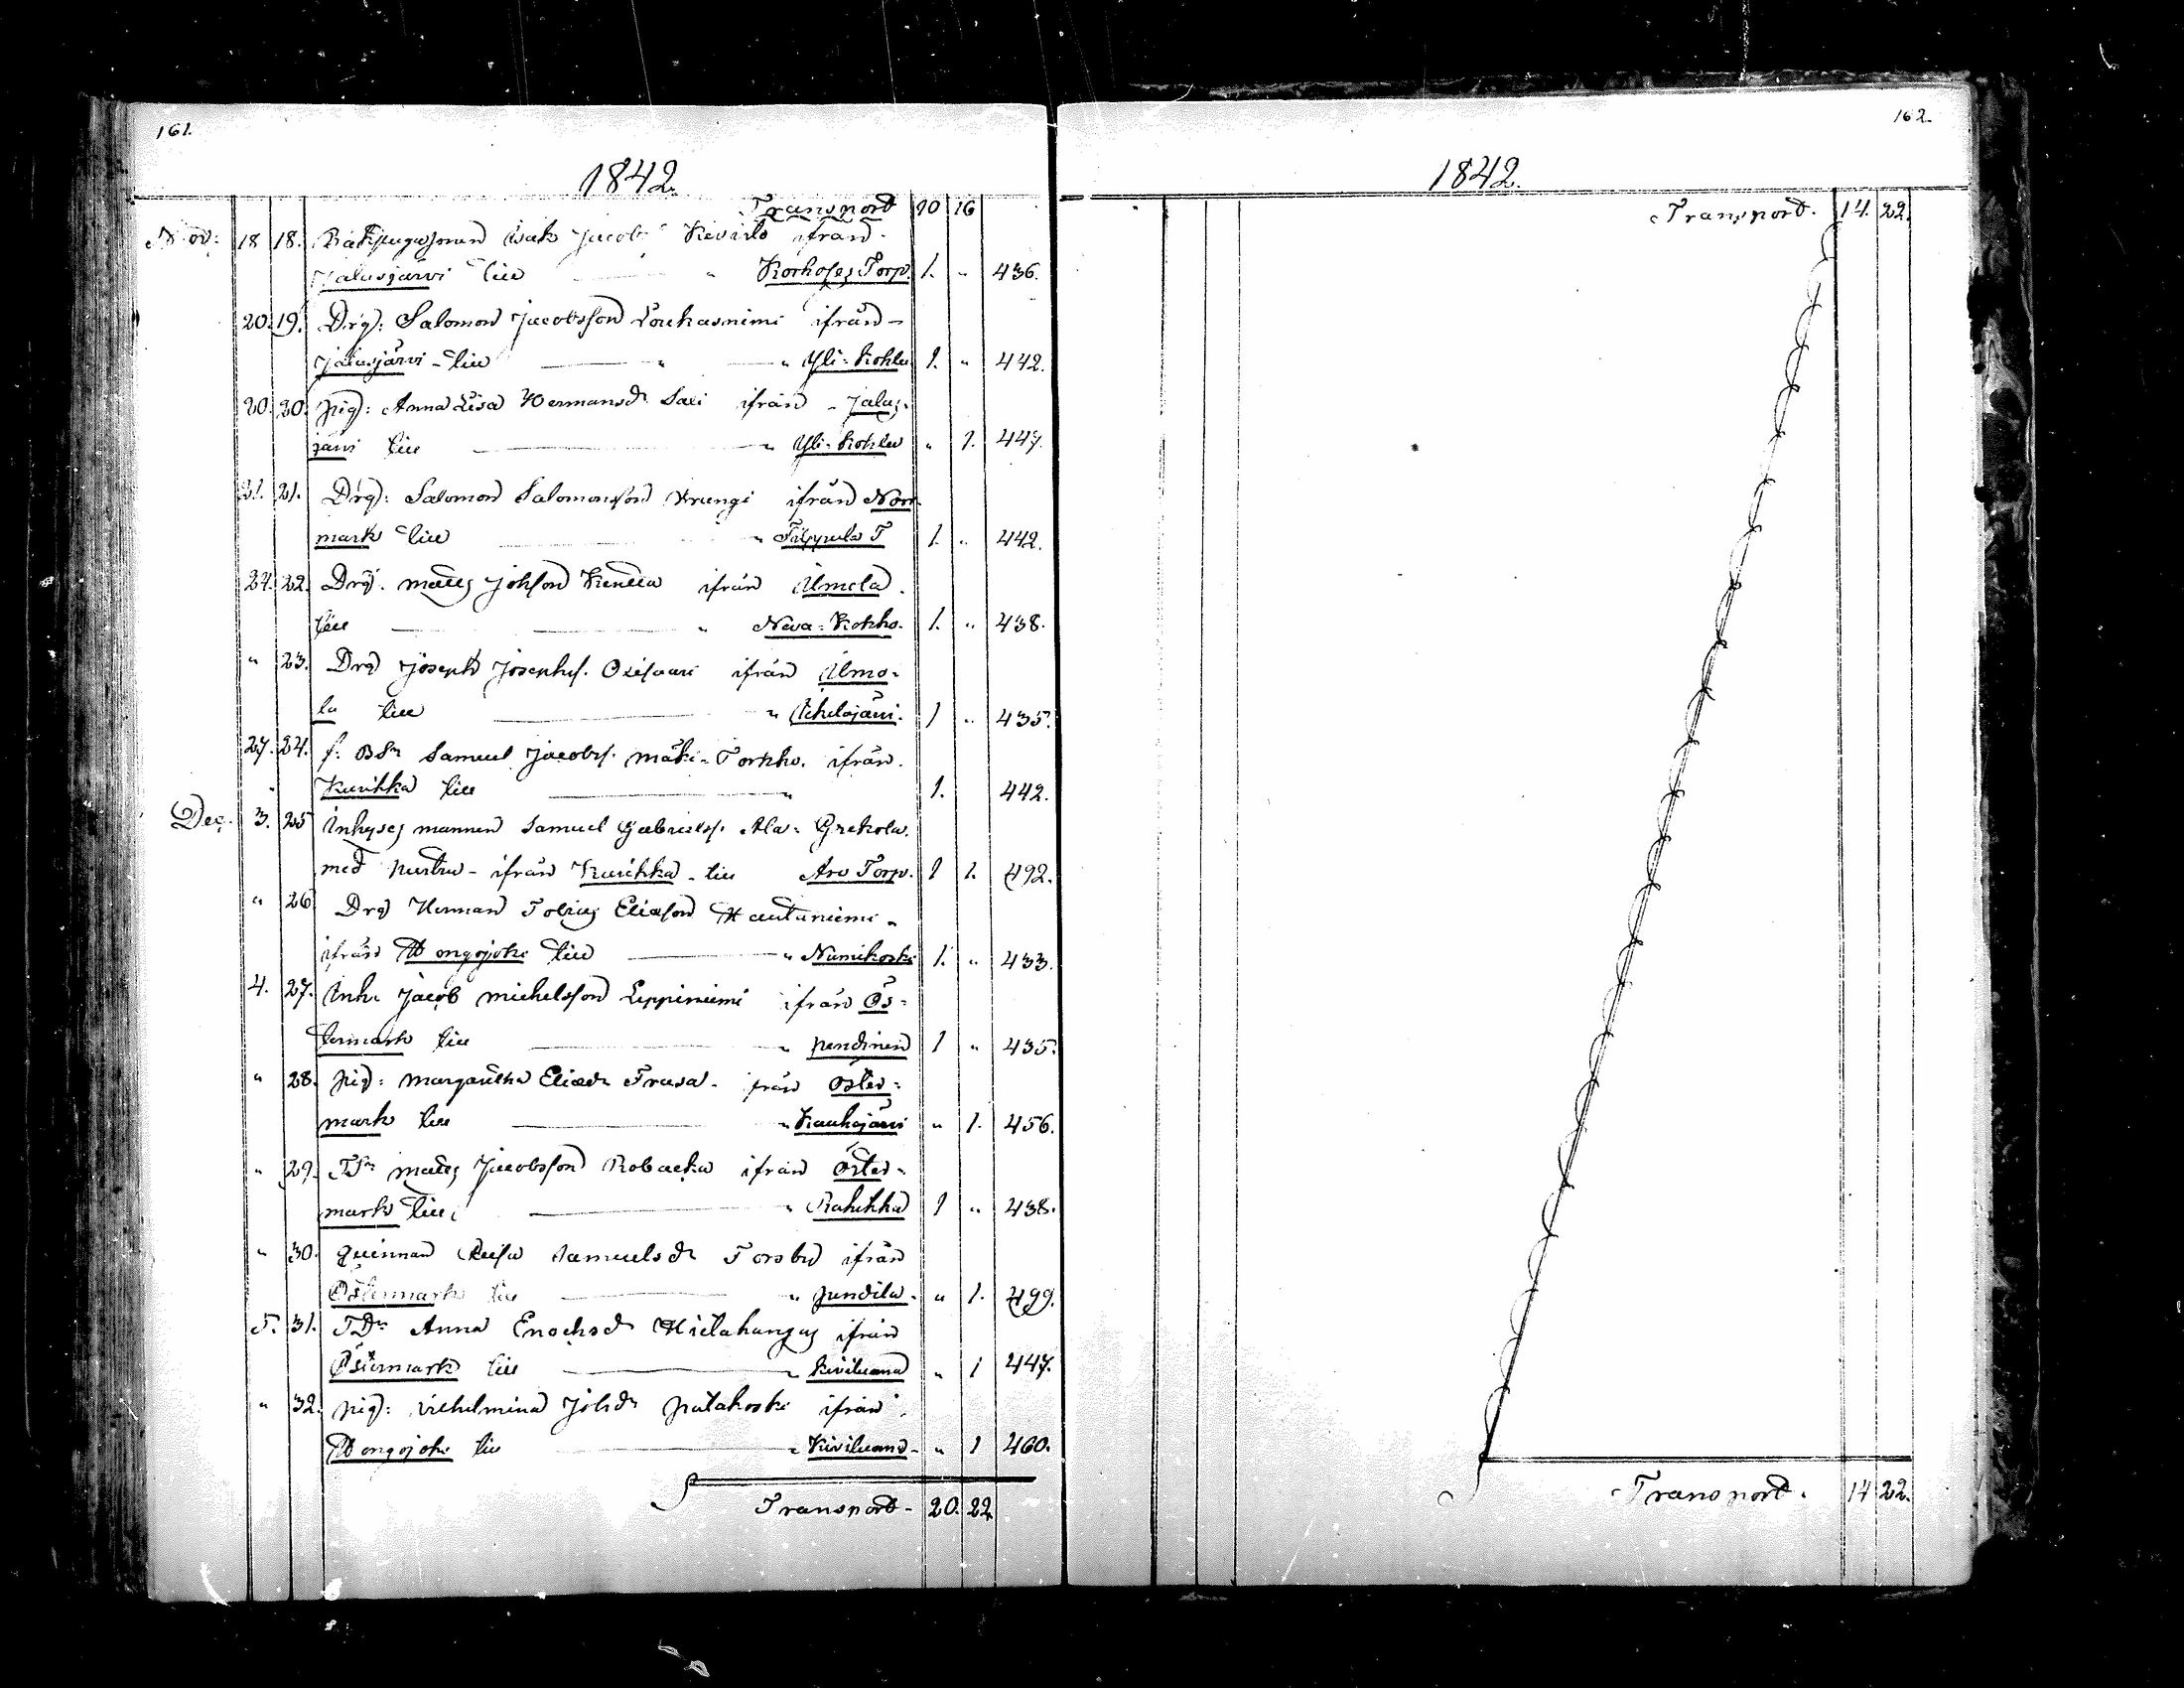 161.
1842.
Transport 10 16
Nov: 18 18. Isak Jacobs ifrån
Jalasjärvi till " Korhoses Torp. 1. " 436.
20. 19. Drg: Salomon Jacobsson Loukasnimi ifrån
Jalasjärvi till " " Yli-Kohlu 1. " 442.
20. 20. pig: Anna Lisa Hermansdr Sali ifrån Jalas-
järvi till " Yli-Kohlu " 1. 447.
21. 21. Drg: Salomon Salomonsson Krungi ifrån Norr-
mark till " Filppula T 1. " 442.
27. 22. Drg: Matts Johsson ifrån Ilmola
till " Neva-Kokko. 1. " 438.
" 23. Drg Joseph Josephs. ifrån Ilmo-
la till " 1 " 435.
27. 24. f: BSn Samuel Jacobs. Mäki-Torkko. ifrån
Kurikka till " 1. 442.
Dec. 3. 25 Inhyses mannen Samuel Gabriels. Ala-Grekola.
med hustru ifrån Kurikka till Aro Torp. 1 1. 492.
" 26 Drg Herman Tobias Eliasson Hautaniemi
ifrån Wongojoki till " Nimikoski 1. " 433.
4. 27. Inh: Jacob Michelsson Leppiniemi ifrån Ös-
termark till " pendinen 1 " 435.
" 28. pig: Margaretha Eliasdr ifrån Öster-
mark till " Kauhajärvi " 1. 456.
" 29. TSn Matts Jacobsson Robacka ifrån Öster-
mark till " Rahikka 1 " 438.
" 30. Quinnan Caisa Samuelsdr Forsbu ifrån
Östermark till " pendila. " 1. 499.
5. 31. TDr Anna Enochsdr Hietakangas ifrån
Östermark till " Kiviluoma " 1 447.
" 32. pig: Vilhelmina Johdr putakoski ifrån
Wongojoki till " Kiviluoma " 1 460.
Transport 20. 22
162.
1842.
Transport. 14. 22.
Transport. 14 22.